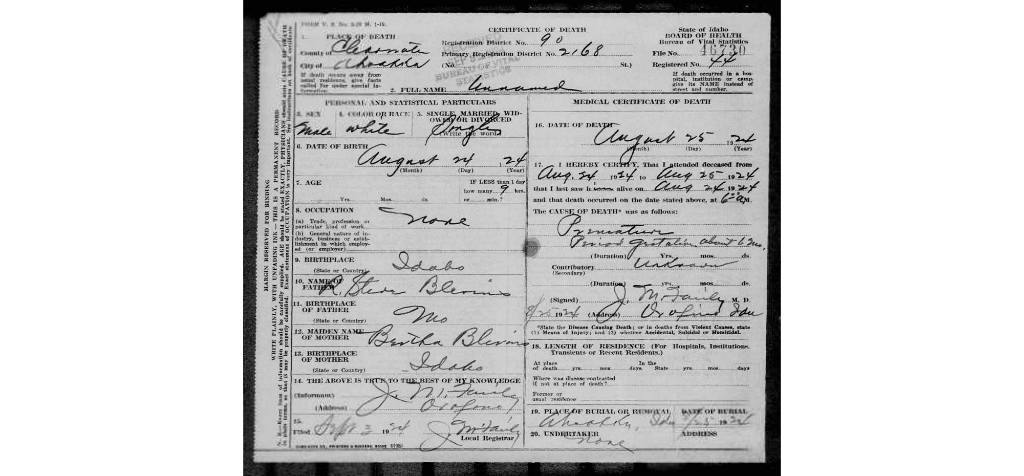 FORM V. S. No. 5-20 M. 1-19.
CERTIFICATE OF DEATH
State of Idaho
BOARD OF HEALTH
Bureau of Vital Statistics
1. PLACE OF DEATH
County of
City of Ahsahka
Registration District No. 90
Primary Registration District No. 2168
(No. St.)
File No. 46730
Registered No. 44
BUREAU OF VITAL STATISTICS
If death occurs away from usual residence, give facts called for under special information.
2. FULL NAME Unnamed
If death occurred in a hospital, institution or camp give its NAME instead of street and number.
PERSONAL AND STATISTICAL PARTICULARS
3. SEX Male
4. COLOR OR RACE white
5. SINGLE, MARRIED, WIDOWED OR DIVORCED Single
(Write the word)
6. DATE OF BIRTH
August 24, 1924
(Month) (Day) (Year)
7. AGE
Yrs. Mos. ds.
IF LESS than 1 day how many 9 hrs. or min.?
8. OCCUPATION
(a) Trade, profession or particular kind of work
(b) General nature of industry, business or establishment in which employed (or employer)
None
9. BIRTHPLACE
(State or Country) Idaho
10. NAME OF FATHER R. Steve Blevins
11. BIRTHPLACE OF FATHER
(State or Country) Mo
12. MAIDEN NAME OF MOTHER Bertha Blevins
13. BIRTHPLACE OF MOTHER
(State or Country) Idaho
14. THE ABOVE IS TRUE TO THE BEST OF MY KNOWLEDGE
(Informant) J. M.
(Address) Orofino
15.
Filed Sept 3 1924
Local Registrar
MEDICAL CERTIFICATE OF DEATH
16. DATE OF DEATH
August 25 1924
(Month) (Day) (Year)
17. I HEREBY CERTIFY, That I attended deceased from
Aug. 24 1924 to Aug 25 1924
that I last saw h alive on Aug 24 1924
and that death occurred on the date stated above, at 6 a M.
The CAUSE OF DEATH* was as follows:
Premature
Period gestation about 6 mo.
(Duration) Yrs. mos. ds.
Contributory Unknown
(Secondary)
(Duration) yrs. mos. ds.
(Signed) J. M. D.
8/25 1924 (Address) Orofino Ida
*State the Disease Causing Death; or in deaths from Violent Causes, state (1) Means of Injury; and (2) whether Accidental, Suicidal or Homicidal.
18. LENGTH OF RESIDENCE (For Hospitals, Institutions, Transients or Recent Residents.)
At place of death yrs. mos. days In the State yrs. mos. days
Where was disease contracted if not at place of death?
Former or usual residence
19. PLACE OF BURIAL OR REMOVAL DATE OF BURIAL
Ahsahka, Ida 8/25 1924
20. UNDERTAKER ADDRESS
None
MARGIN RESERVED FOR BINDING
WRITE PLAINLY, WITH UNFADING INK—THIS IS A PERMANENT RECORD